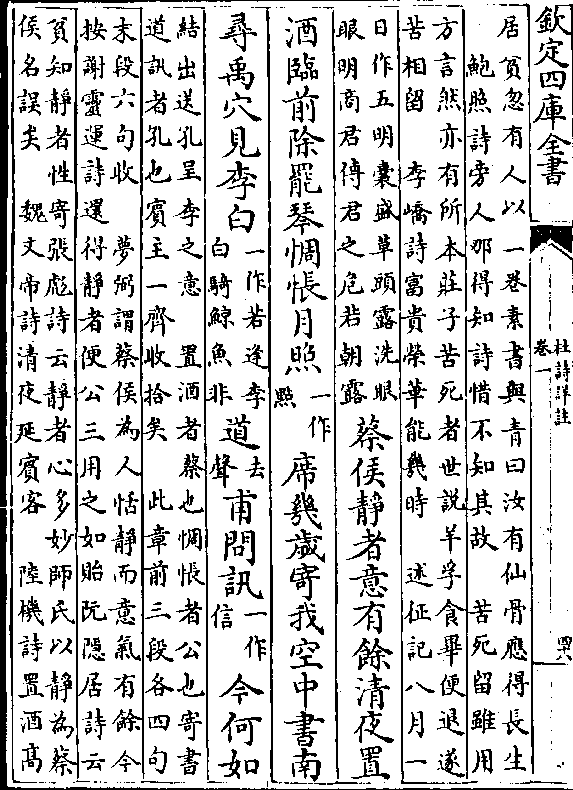 欽定四庫全書
杜詩詳註
卷一
居貧忽有人以一卷素書與青曰汝有仙骨應得長生
鮑照詩旁人那得知詩惜不知其故　苦死留雖用
方言然亦有所本莊子苦死者世說羊孚食畢便退遂
苦相留　李嶠詩富貴榮華能幾時　述征記八月一
日作五明囊盛草頭露洗眼
眼明商君傳君之危若朝露
蔡侯靜者意有餘清夜置
酒臨前除罷琴惆悵月照一作點席幾歲寄我空中書南
尋禹穴見李白一作若逢李白騎鯨魚非道去聲甫問訊一作信今何如
結出送孔呈李之意　置酒者蔡也惆悵者公也寄書
道訊者孔也賓主一齊收拾矣　此章前三段各四句
末段六句收　夢弼謂蔡侯為人恬靜而意氣有餘今
按謝靈運詩還得靜者便公三用之如貽阮隱居詩云
貧知靜者性寄張彪詩云靜者心多妙師氏以靜為蔡
侯名誤矣　魏文帝詩清夜延賓客　陸機詩置酒高